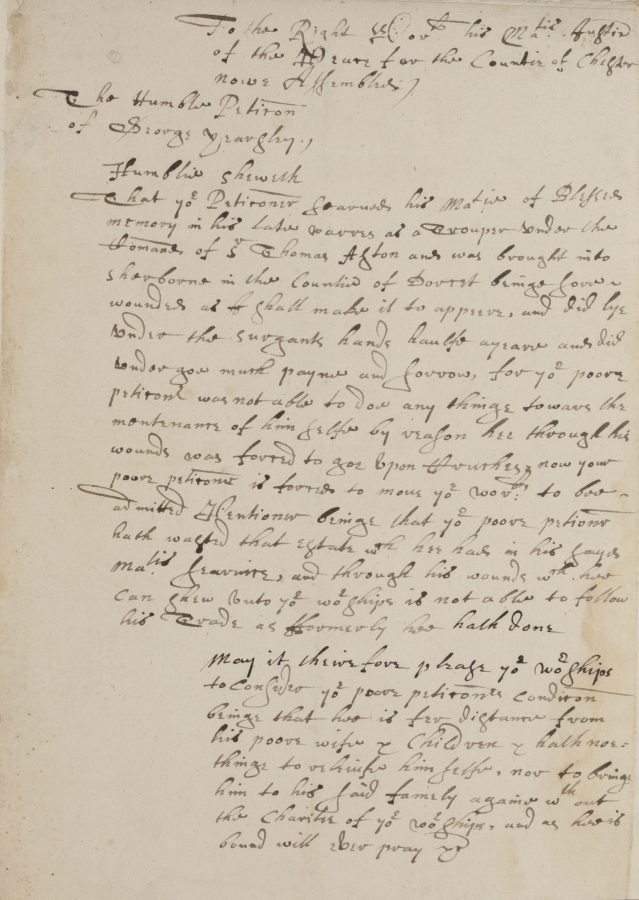 To the Right Wor his Matis Justic
of the Peace for the Countie of Chester
nowe Assembled
The Humble Peticon
of George Yeargley
Humblie Sheweth
That yor Peticoner Searued his Matie of Blessed
memory in his Late warres as a Trouper vnder the
Comand of Sr Thomas Aston and was brought into
Sherborne in the Countie of Dorcet beinge sore
wounded as It shall make it to appeere, and did lye
vnder the Surgants hands haulfe a yeare and did
vnder goe much payne and sorrow, for yor poore
peticonr was not able to doe any thinge towars the
mentenance of him selfe by reason hee through his
wounds was forced to goe vpon Cruches, now your
poore peticoner is forced to move yor worps to bee
admitted Pentioner beinge that yor poore petionr
hath wasted that estate wch hee had in his sayd
Matis Searuice, and through his wounds wch hee
Can shew vnto yor worships is not able to follow
his Trade as formerly hee hath done
May it theirefore please yor worships
to Consider yor poore peticoners Condicon
beinge that hee is fer distance from
his poore wife & Children & hath noe=
thinge to releiufe him selfe, nor to bringe
him to his said famely againe wth out
the Charitie of yor worships, and as hee is
bound will ever pray &c